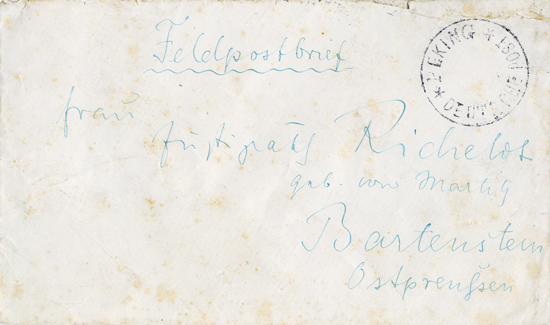 Feldpostbrief
PEKING
Frau
Justizrath Richelot
geb. von Martiz
Bartenstein
Ostpreußen